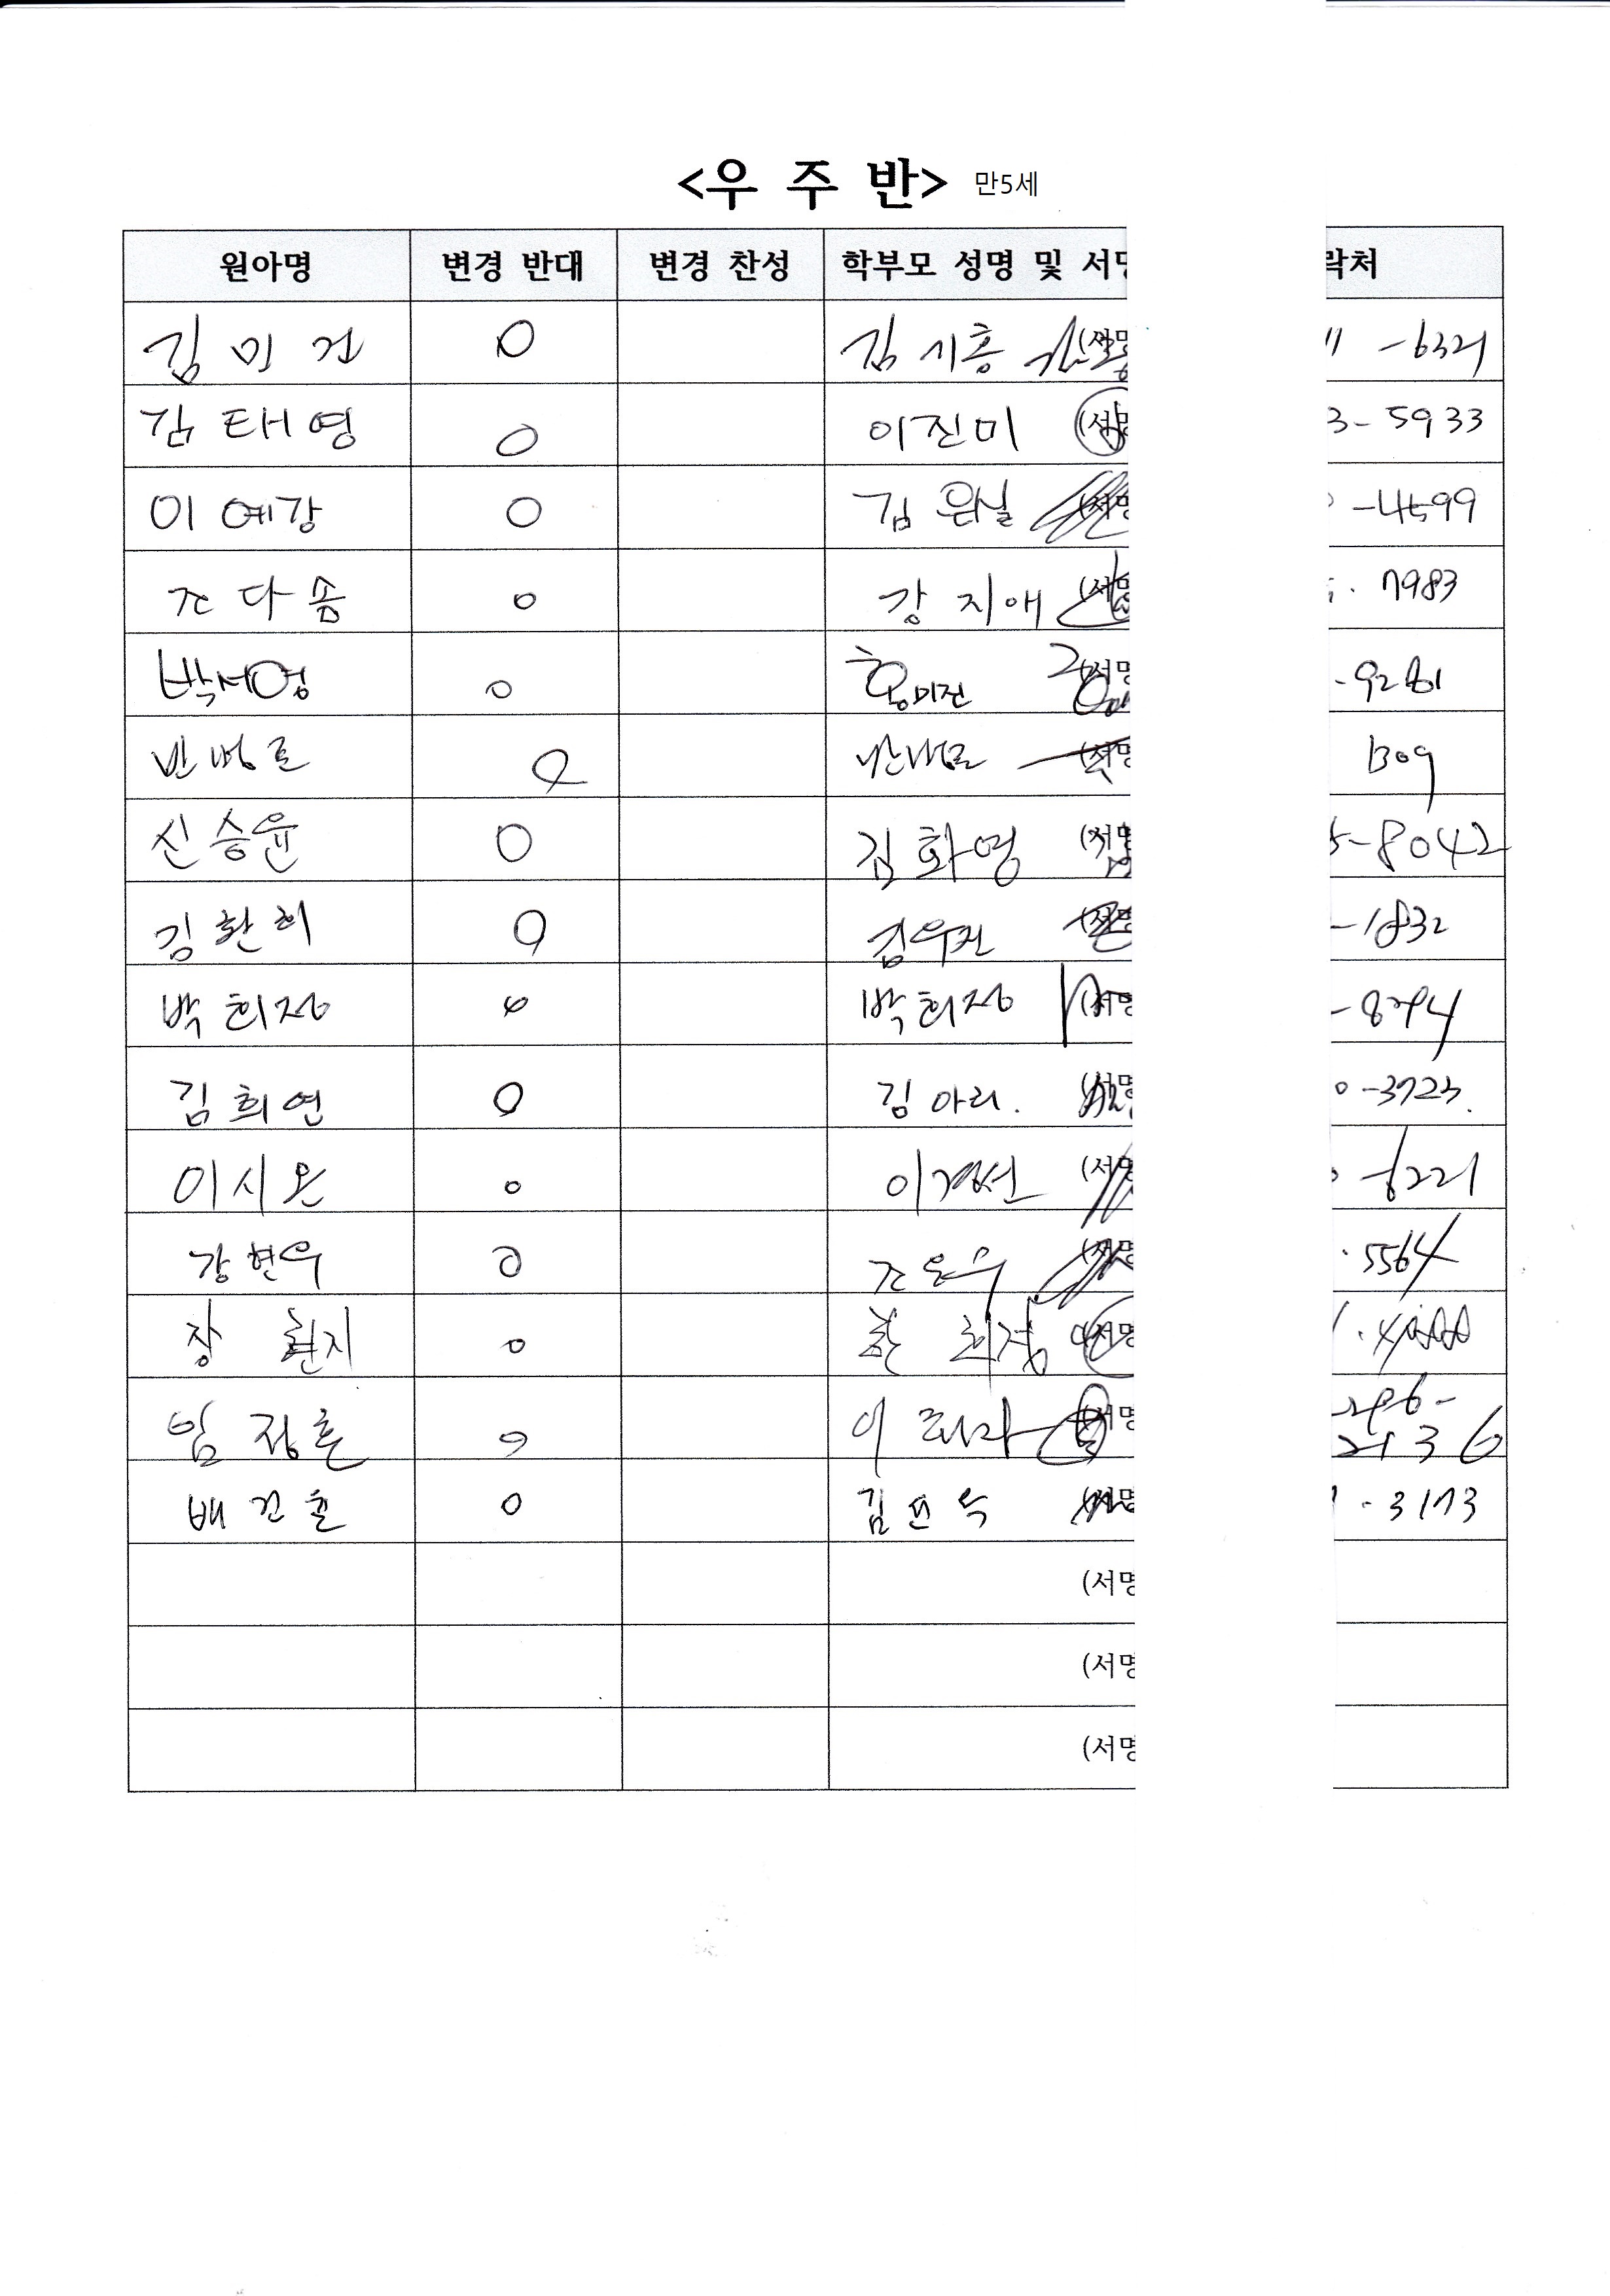 <우 주 반> 만5세
원아명 변경 반대 변경 찬성 학부모 성명 및 서명 락처
김 미 건 O 김 시흥 (서명 -6321
김 태 영 O 이진미 (서명 3-5933
이 예강 O 김 (서명 -4599
조 다솜 O 강 지애 (서명 7983
박서영 O 홍미진 (서명
O (서명 1309
신승윤 O 김화영 (서명 5-8042
김환희 O 김우진 (서명 -1832
박희정 O 박희정 (서명
김희연 O 김아리. (서명 0-3723.
이시온 O (서명 -6221
강현우 O 조은우 (서명 .5564
장 현지 O 한 희경 (서명
임정훈 O 이 (서명 2136
배건훈 O 김 (서명 1.3173
(서명
(서명
(서명